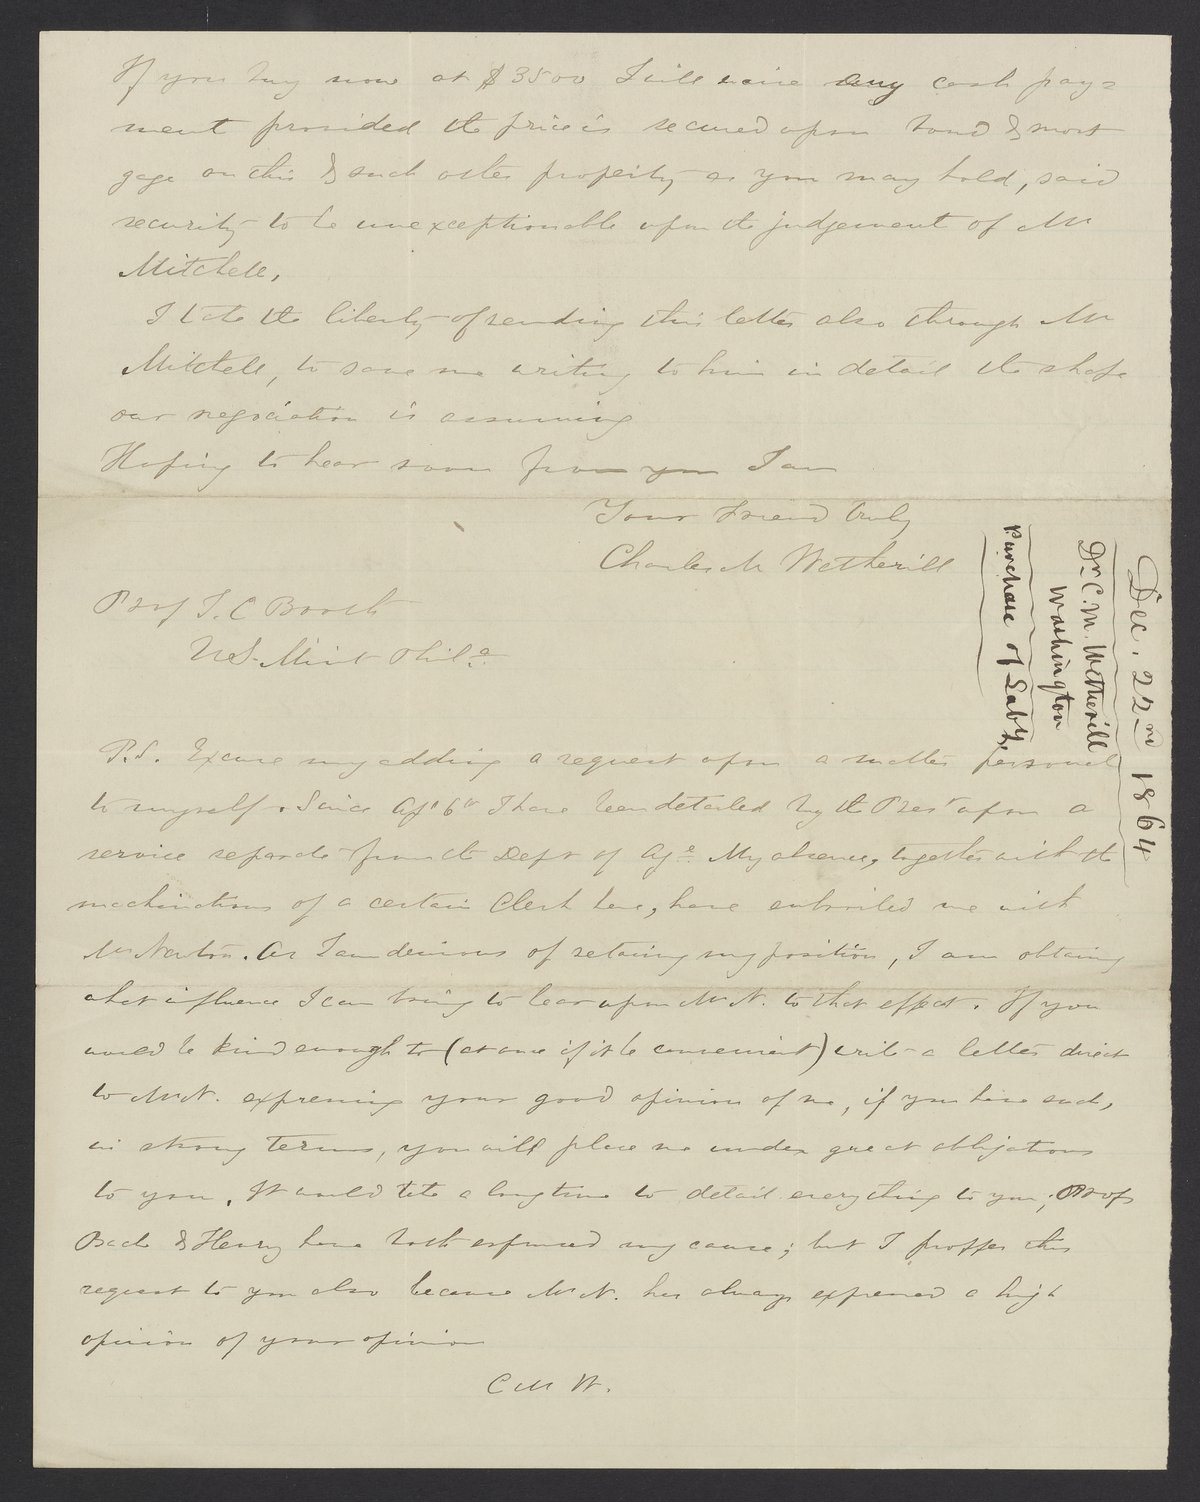 If you buy now at $3500 I will waive any cash pay=
ment provided the price is secured upon bond & mort
gage on this & such other property as you may hold, said
security to be unexceptionable upon the judgement of Mr
Mitchell,
I take the liberty of sending this letter also through Mr
Mitchell, to save me writing to him in detail the shape
our negociation is assuming
Hoping to hear soon from you I am
Your friend truly
Charles M Wetherill
Prof J. C Booth
U.S. Mint Phila
P.S. Excuse my adding a request upon a matter personal
to myself. Since Apl 6th I have been detailed by the Prest upon a
service separate from the Dept of Agre. My absence, together with the
machinations of a certain Clerk here, have embroiled me with
Mr Newton. As I am desirous of retaining my position, I am obtaing
what influence I can bring to bear upon Mr N. to that effect. If you
would be kind enough to (at once if it be convenient) write a letter direct
to Mr N. expressing your good opinion of me, if you have such,
in strong terms, you will place me under great obligations
to you. It would take a long time to detail everything to you; Profs
Bache & Henry have both espoused my cause; but I proffer this
request to you also because Mr N. has always expressed a high
opinion of your opinion
C M W.
Dec. 22nd 1864
Dr C. M. Wetherill
Washington
Purchase of Laby.